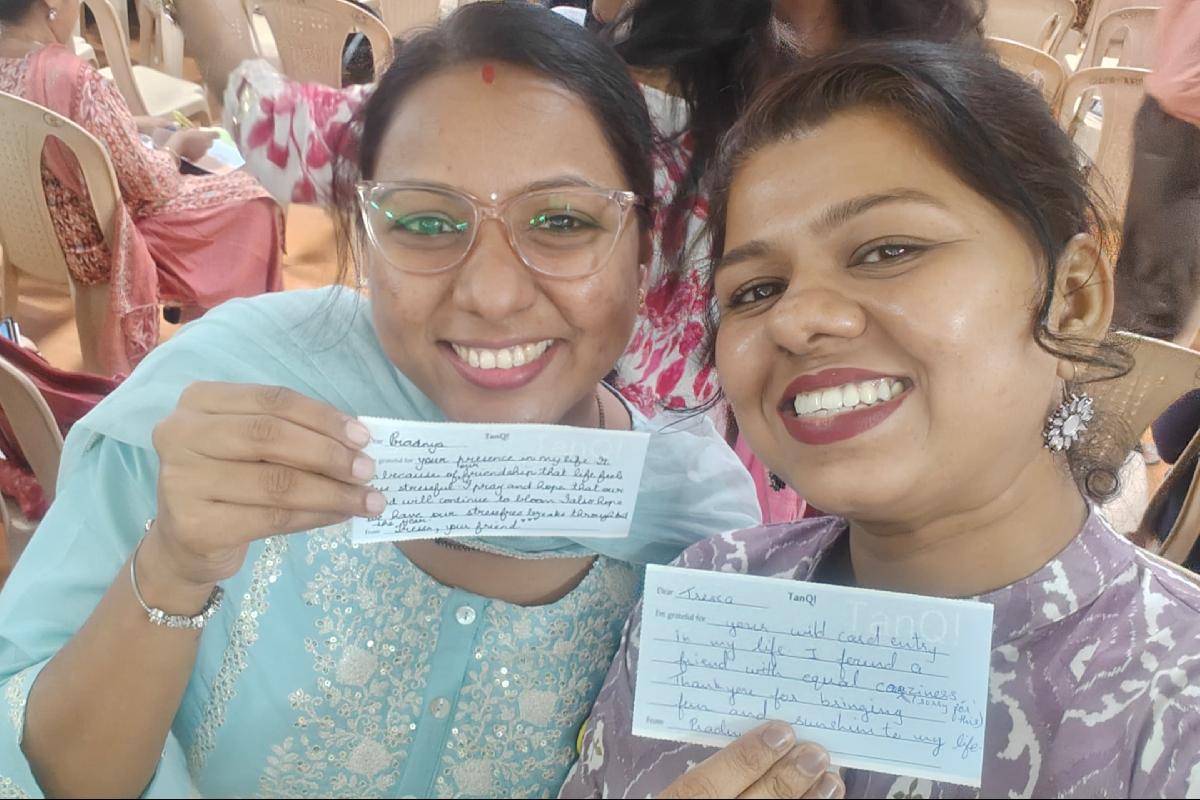 Dear Pradnya TanQ!
grateful for your presence in my life. It
because of your friendship that life feels
stressful. I pray and hope that our
will continue to bloom. I also hope
we have our stressfree breaks throughout
the year.
From Tressa, your friend
Dear Tressa TanQ!
I'm grateful for your wild card entry
in my life. I found a
friend with equal craziness
(sorry for this)
Thankyou for bringing
fun and sunshine to my life.
From Pradnya